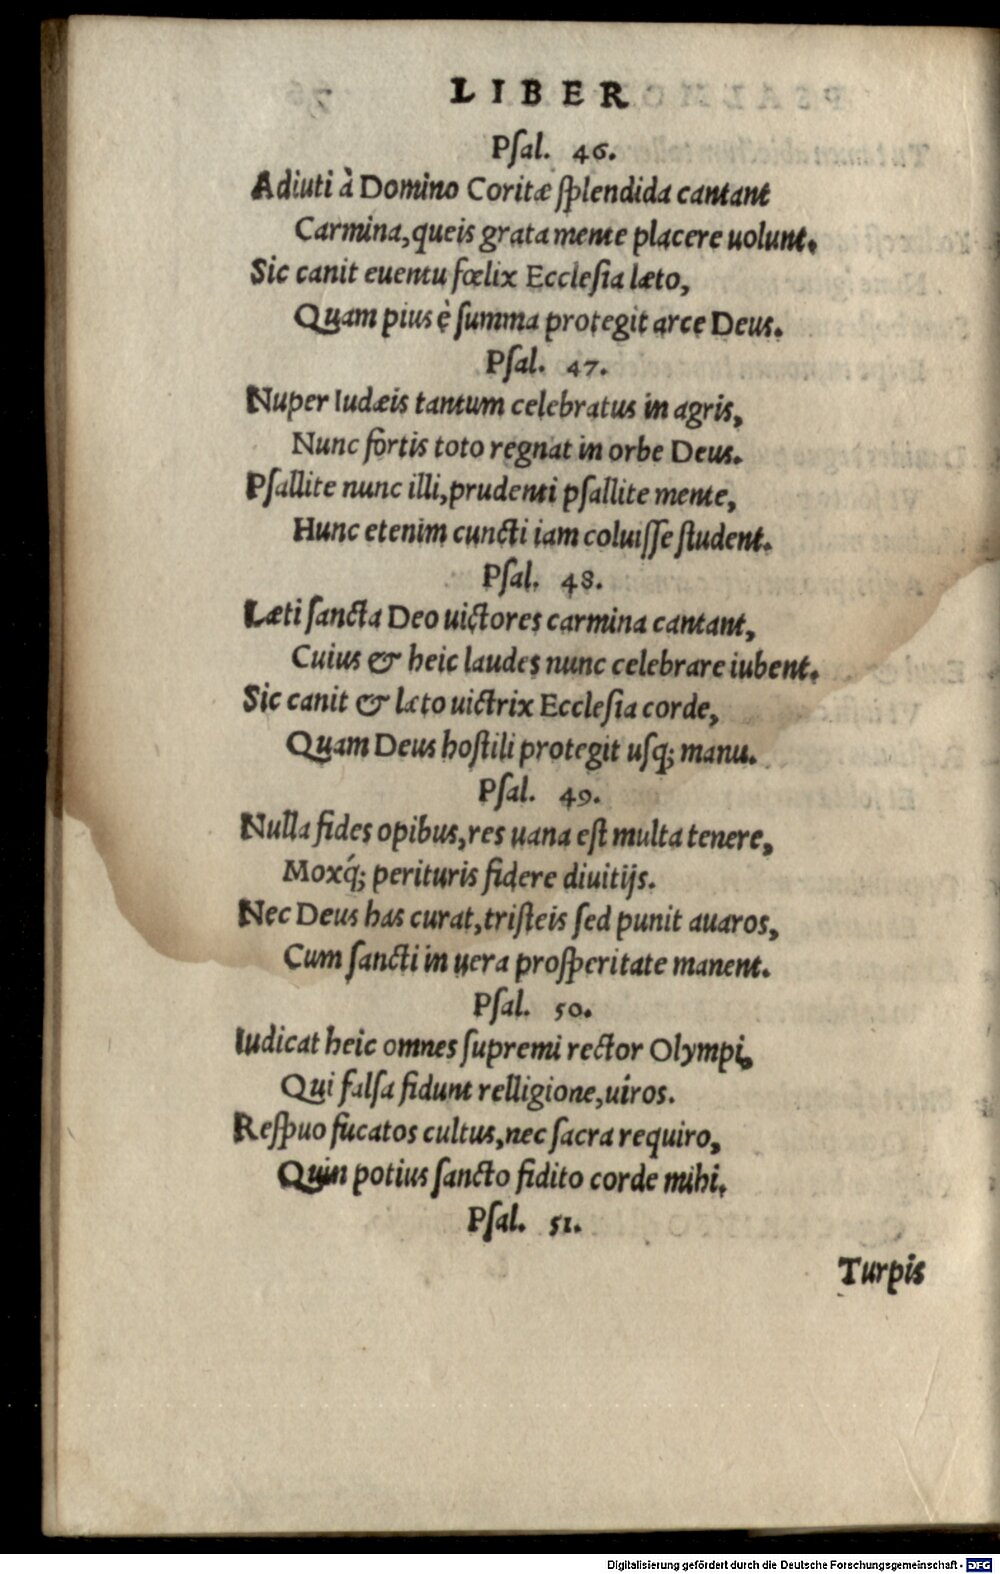 LIBER
Pſal. 46.
Adiuti à Domino Coritæ ſplendida cantant
Carmina, queis grata mente placere uolunt.
Sic canit euentu fœlix Eccleſia læto,
Quam pius è ſumma protegit arce Deus.
Pſal. 47.
Nuper Iudæis tantum celebratus in agris,
Nunc fortis toto regnat in orbe Deus.
Pſallite nunc illi, prudenti pſallite mente,
Hunc etenim cuncti iam coluiſſe ſtudent.
Pſal. 48.
Læti ſancta Deo uictores carmina cantant,
Cuius & heic laudes nunc celebrare iubent.
Sic canit & læto uictrix Eccleſia corde,
Quam Deus hoſtili protegit uſq; manu.
Pſal. 49.
Nulla fides opibus, res uana eſt multa tenere,
Moxq́; perituris fidere diuitijs.
Nec Deus has curat, triſteis ſed punit auaros,
Cum ſancti in uera proſperitate manent.
Pſal. 50.
Iudicat heic omnes ſupremi rector Olympi,
Qui falſa fidunt relligione, uiros.
Reſpuo fucatos cultus, nec ſacra requiro,
Quin potius ſancto fidito corde mihi.
Pſal. 51.
Turpis
Digitalisierung gefördert durch die Deutsche Forschungsgemeinschaft - DFG